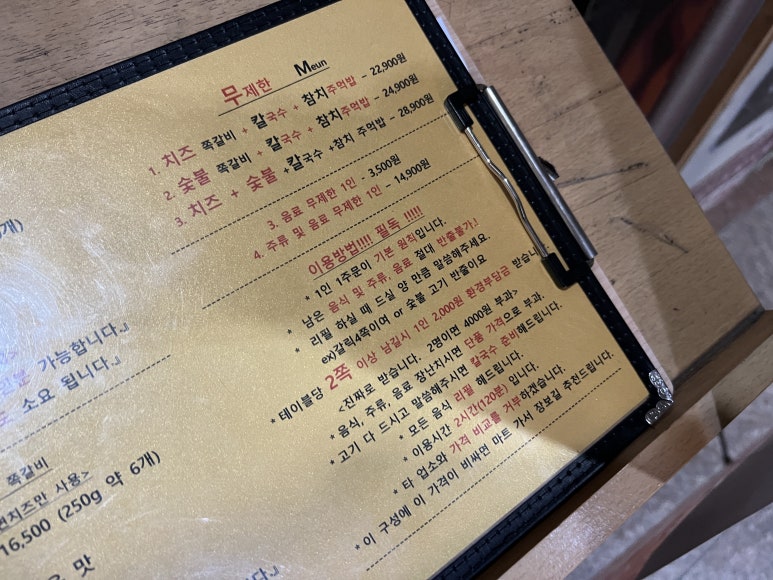 무제한 Meun
1. 치즈 쪽갈비 + 칼국수 + 참치주먹밥 - 22,900원
2. 숯불 쪽갈비 + 칼국수 + 참치주먹밥 - 24,900원
3. 치즈 + 숯불 +칼국수 +참치 주먹밥 - 28,900원
3. 음료 무제한 1인 - 3,500원
4. 주류 및 음료 무제한 1인 - 14,900원
이용방법!!!! 필독 !!!!!
* 1인 1주문이 기본 원칙입니다.
* 남은 음식 및 주류, 음료 절대 반출불가』
* 리필 하실 때 드실 양 만큼 말씀해주세요.
ex)갈릭4쪽이여 or 숯불 고기 반줄이요
* 테이블당 2쪽 이상 남길시 1인 2,000원 환경부담금 받습니다
<진짜로 받습니다. 2명이면 4000원 부과>
* 음식, 주류, 음료 장난치시면 단품 가격으로 부과.
* 고기 다 드시고 말씀해주시면 칼국수 준비해드립니다.
* 모든 음식 리필 해드립니다.
* 이용시간 2시간(120분) 입니다.
* 타 업소와 가격 비교를 거부하겠습니다.
* 이 구성에 이 가격이 비싸면 마트 가서 장보길 추천드립니다.
개)
가능합니다.』
소요 됩니다.』
쪽갈비
치즈만 사용>
16,500 (250g 약 6개)
맛